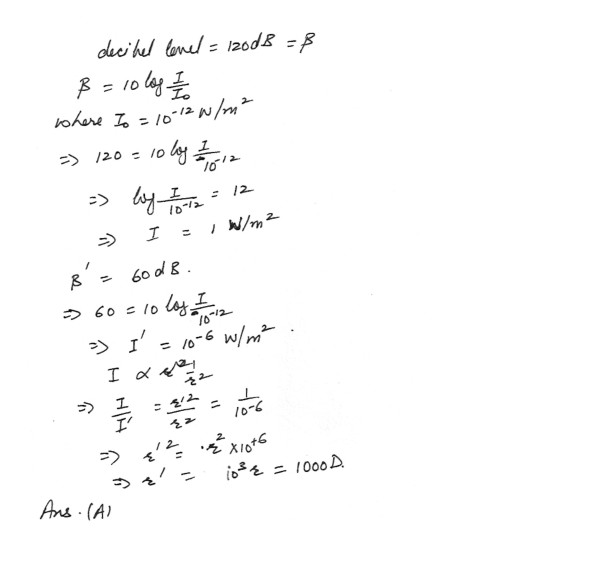 decibel level = 120dB = β
β = 10 log I/I₀
where I₀ = 10⁻¹² W/m²
⇒ 120 = 10 log I/10⁻¹²
⇒ log I/10⁻¹² = 12
⇒ I = 1 W/m²
β' = 60dB.
⇒ 60 = 10 log I/10⁻¹²
⇒ I' = 10⁻⁶ W/m².
I ∝ 1/r²
⇒ I/I' = r'²/r² = 1/10⁻⁶
⇒ r'² = r² × 10⁺⁶
⇒ r' = 10³ r = 1000 D.
Ans. (A)